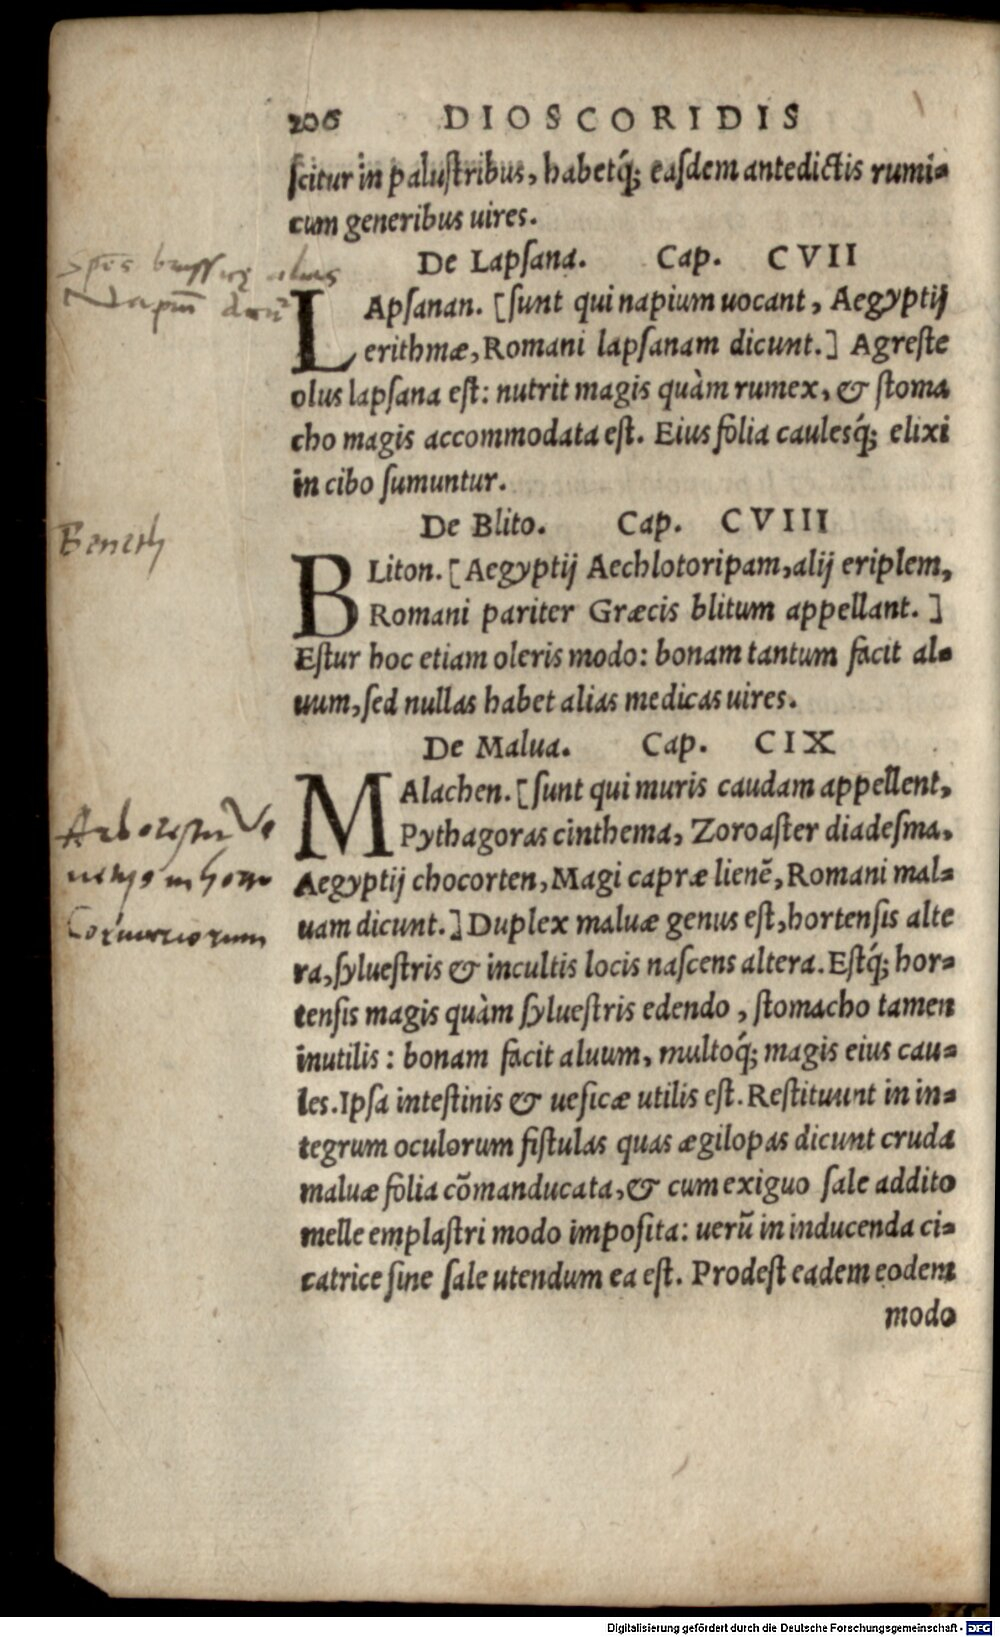 206 DIOSCORIDIS
ſcitur in paluſtribus, habetq́; eaſdem antedictis rumi-
cum generibus uires.
De Lapſana. Cap. CVII
LApſanan. [ſunt qui napium uocant, Aegyptij
erithmæ, Romani lapſanam dicunt.] Agreſte
olus lapſana eſt: nutrit magis quàm rumex, & ſtoma
cho magis accommodata eſt. Eius folia caulesq́; elixi
in cibo ſumuntur.
De Blito. Cap. CVIII
Beneth
BLiton. [Aegyptij Aechlotoripam, alij eriplem,
Romani pariter Græcis blitum appellant.]
Eſtur hoc etiam oleris modo: bonam tantum facit al-
uum, ſed nullas habet alias medicas uires.
De Malua. Cap. CIX
MAlachen. [ſunt qui muris caudam appellent,
Pythagoras cinthema, Zoroaſter diadeſma,
Aegyptij chocorten, Magi capræ lienē, Romani mal-
uam dicunt.] Duplex maluæ genus eſt, hortenſis alte
ra, ſylueſtris & incultis locis naſcens altera. Eſtq́; hor-
tenſis magis quàm ſylueſtris edendo, ſtomacho tamen
inutilis: bonam facit aluum, multoq́; magis eius cau-
les. Ipſa inteſtinis & ueſicæ utilis eſt. Reſtituunt in in-
tegrum oculorum fiſtulas quas ægilopas dicunt cruda
maluæ folia cōmanducata, & cum exiguo ſale addito
melle emplaſtri modo impoſita: uerū in inducenda ci-
catrice ſine ſale utendum ea eſt. Prodeſt eadem eodem
modo
Digitalisierung gefördert durch die Deutsche Forschungsgemeinschaft - DFG